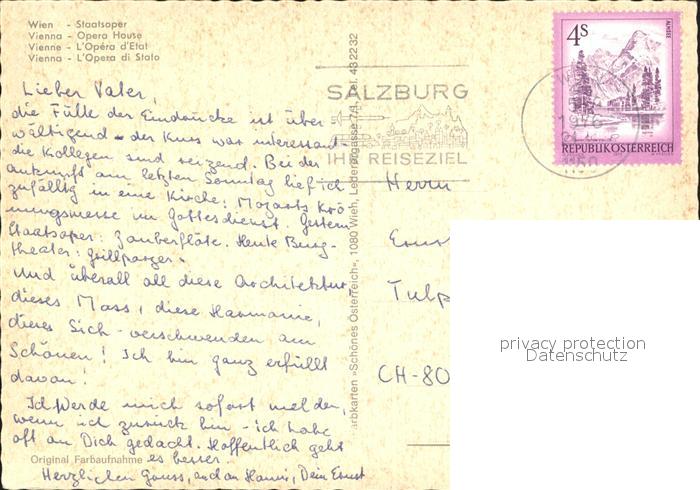 Wien - Staatsoper
Vienna - Opera House
Vienne - L'Opéra d'Etat
Vienna - L'Opera di Stato
Lieber Vater,
die Fülle der Eindrücke ist über-
wältigend - der Kurs war interessant -
die Kollegen sind reizend. Bei der
Ankunft am letzten Sonntag lief ich
zufällig in eine Kirche: Mozarts Krö-
nungsmesse im Gottesdienst. Gestern
Staatsoper: Zauberflöte. Heute Burg-
theater: Grillparzer.
Und überall all diese Architektur,
dieses Mass, diese Harmonie,
dieses Sich-verschwenden am
Schönen! Ich bin ganz erfüllt
davon!
Ich werde mich sofort melden,
wenn ich zurück bin - ich habe
oft an Dich gedacht. Hoffentlich geht
es besser.
Herzlichen Gruss, auch an Hanni, Dein Ernst
Original Farbaufnahme
arbkarten »Schönes Österreich«, 1080 Wien, Lederergasse 7/1, Tel. 432232
SALZBURG
IHR REISEZIEL
4S
ALMSEE
REPUBLIK ÖSTERREICH
1976
1150
Herrn
Ernst
Tulp
CH-80
privacy protection
Datenschutz